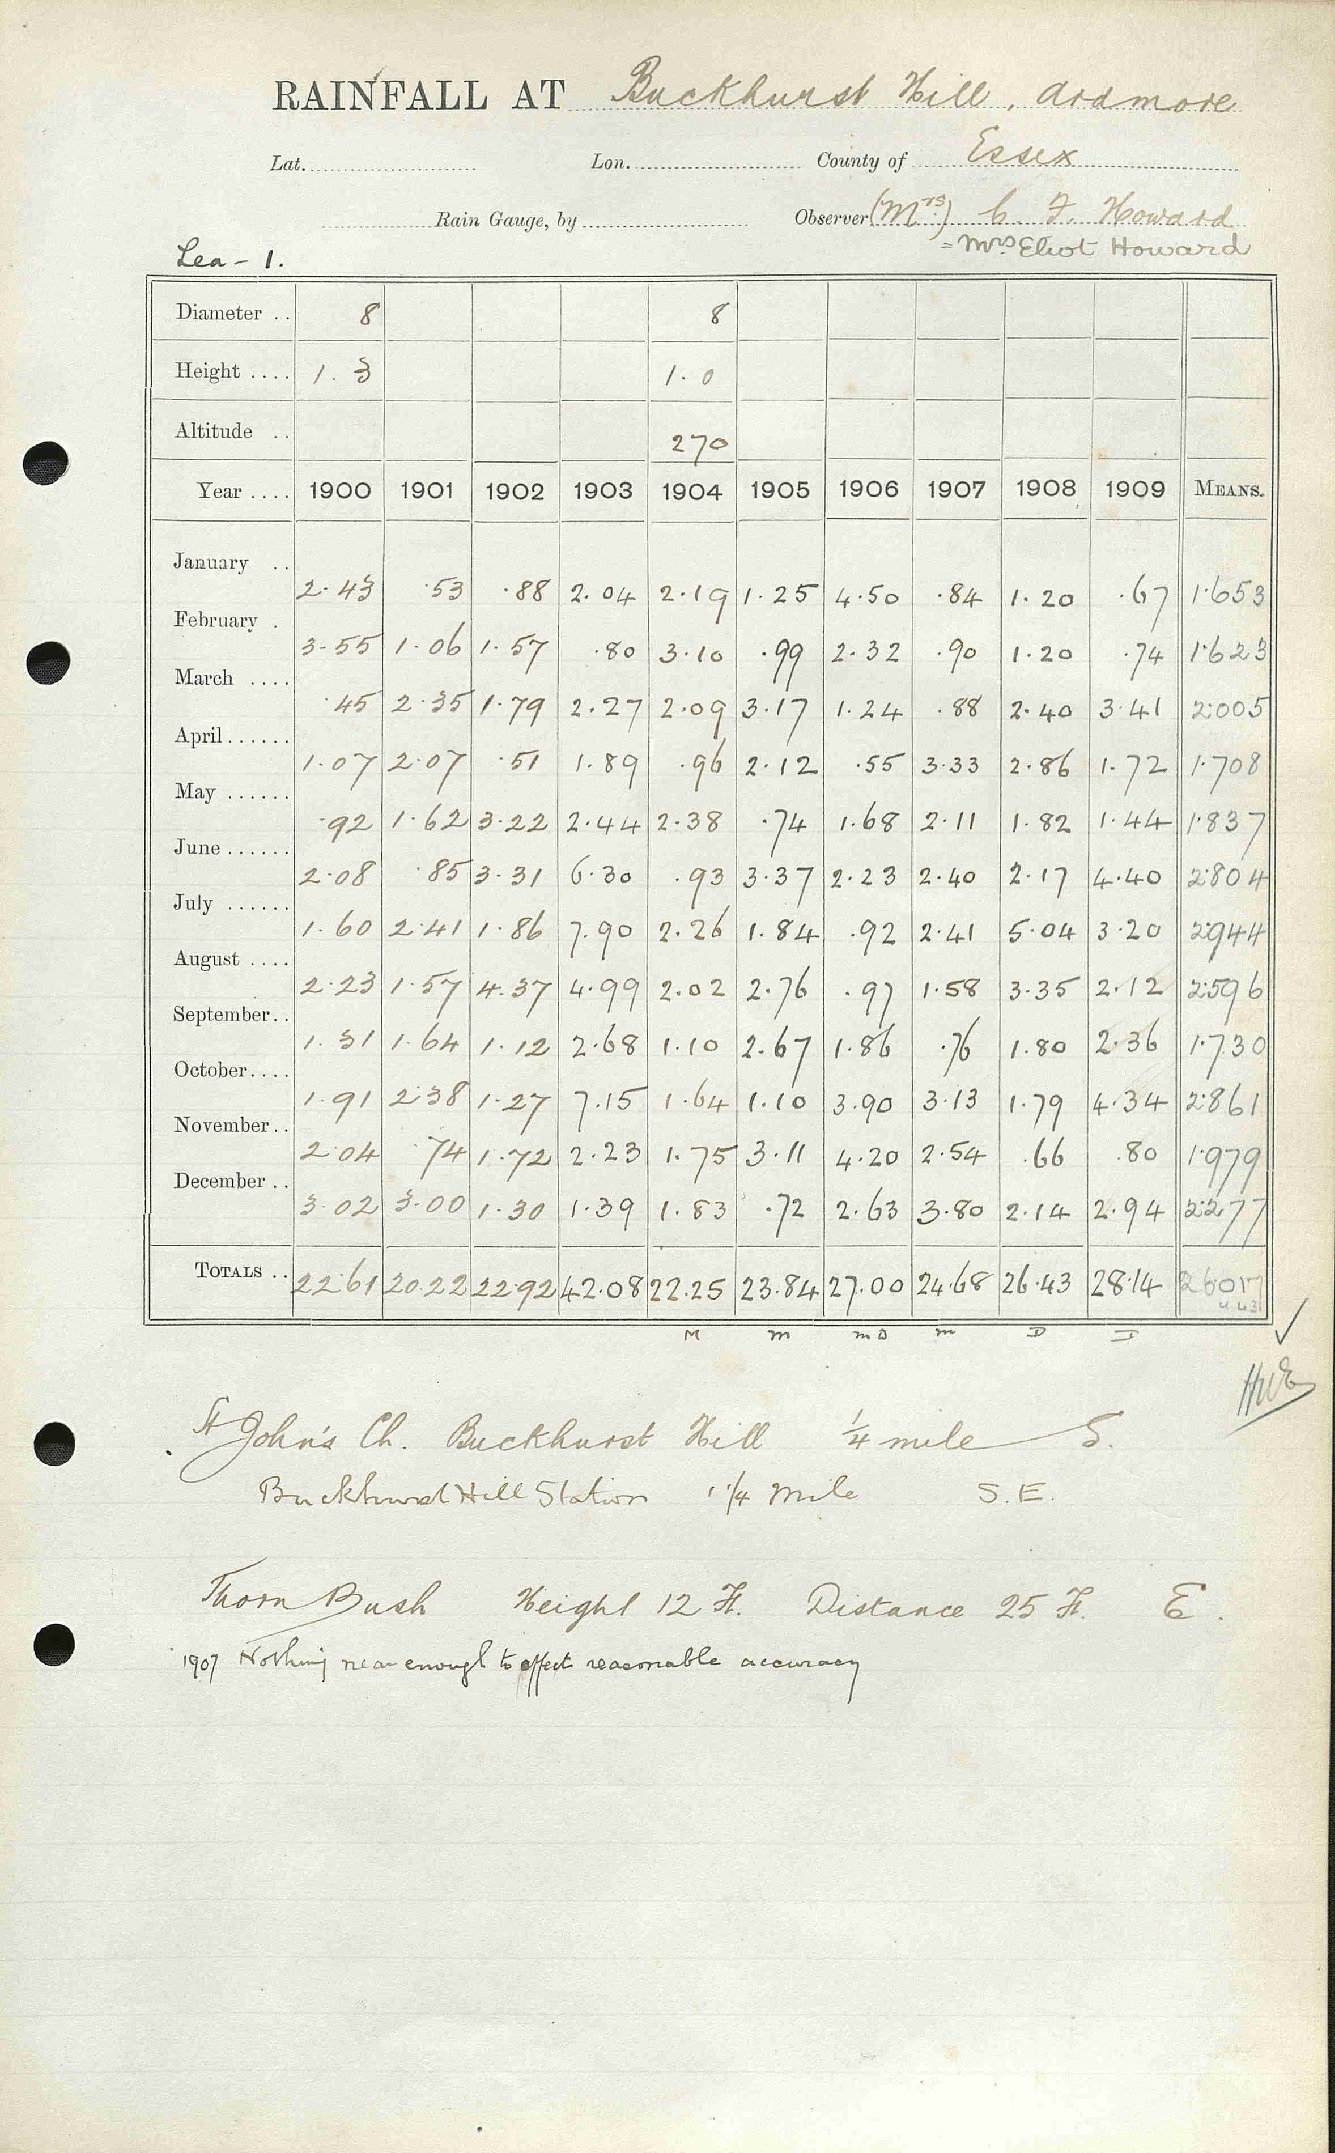 RAINFALL AT Buckhurst Hill, Ardmore
Lat. Lon. County of Essex
Rain Gauge, by Observer (Mrs) C. F. Howard
= Mrs Eliot Howard
Lea - 1.
Diameter .. 8 8
Height .... 1.3 1.0
Altitude .. 270
Year .... 1900 1901 1902 1903 1904 1905 1906 1907 1908 1909 MEANS.
January .. 2.43 .53 .88 2.04 2.19 1.25 4.50 .84 1.20 .67 1.653
February . 3.55 1.06 1.57 .80 3.10 .99 2.32 .90 1.20 .74 1.623
March .... .45 2.35 1.79 2.27 2.09 3.17 1.24 .88 2.40 3.41 2.005
April...... 1.07 2.07 .51 1.89 .96 2.12 .55 3.33 2.86 1.72 1.708
May ...... .92 1.62 3.22 2.44 2.38 .74 1.68 2.11 1.82 1.44 1.837
June ...... 2.08 .85 3.31 6.30 .93 3.37 2.23 2.40 2.17 4.40 2.804
July ...... 1.60 2.41 1.86 7.90 2.26 1.84 .92 2.41 5.04 3.20 2.944
August .... 2.23 1.57 4.37 4.99 2.02 2.76 .97 1.58 3.35 2.12 2.596
September.. 1.31 1.64 1.12 2.68 1.10 2.67 1.86 .76 1.80 2.36 1.730
October.... 1.91 2.38 1.27 7.15 1.64 1.10 3.90 3.13 1.79 4.34 2.861
November.. 2.04 .74 1.72 2.23 1.75 3.11 4.20 2.54 .66 .80 1.979
December .. 3.02 3.00 1.30 1.39 1.83 .72 2.63 3.80 2.14 2.94 2.277
TOTALS .. 22.61 20.22 22.92 42.08 22.25 23.84 27.00 24.68 26.43 28.14 26.017
M m m D m D I
St John's Ch. Buckhurst Hill 1/4 mile S.
Buckhurst Hill Station 1 1/4 mile S.E.
Thorn Bush Height 12 Ft. Distance 25 Ft. E.
1907 Nothing near enough to effect reasonable accuracy